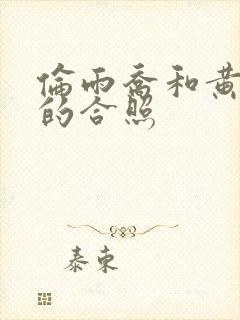 倫雨喬和黃
的合照
泰東